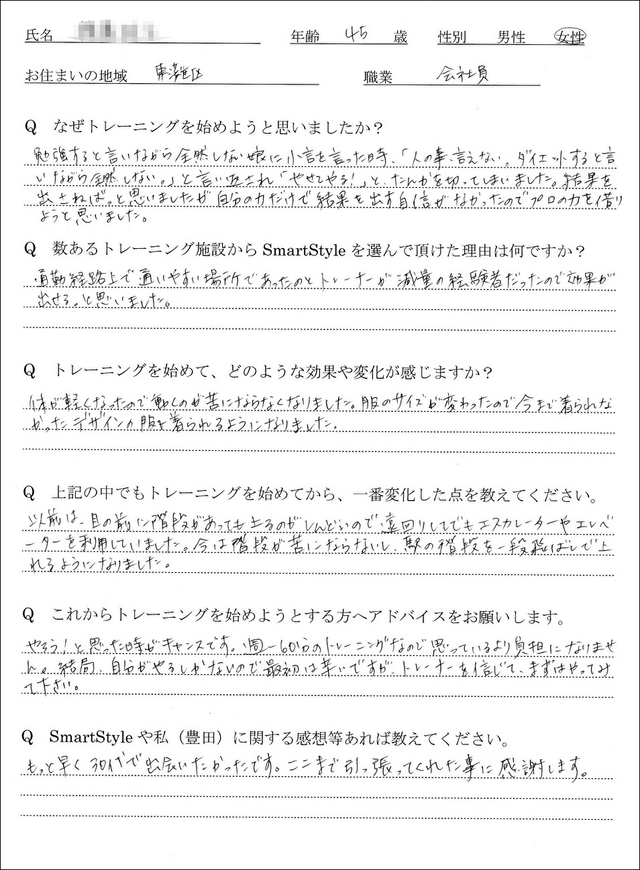 氏名 年齢 45 歳 性別 男性 女性
お住まいの地域 東淀川区 職業 会社員
Q なぜトレーニングを始めようと思いましたか?
勉強すると言いながら全然しない娘に小言を言った時、「人の事言えない。ダイエットすると言
いながら全然しない。」と言い返され「やせてやる!」と、たんかを切ってしまいました。結果を
出さねば。と思いましたが自分の力だけで結果を出す自信がなかったのでプロの力を借り
ようと思いました。
Q 数あるトレーニング施設から SmartStyle を選んで頂けた理由は何ですか?
通勤経路上で通いやすい場所であったのとトレーナーが減量の経験者だったので効果が
出せる。と思いました。
Q トレーニングを始めて、どのような効果や変化が感じますか?
体が軽くなったので動くのが苦にならなくなりました。服のサイズが変わったので今まで着られな
かったデザインの服も着られるようになりました。
Q 上記の中でもトレーニングを始めてから、一番変化した点を教えてください。
以前は、目の前に階段があっても上るのがしんどいので、遠回りしてでもエスカレーターやエレベ
ーターを利用していました。今は階段が苦にならないし、駅の階段を一段飛ばしで上
れるようになりました。
Q これからトレーニングを始めようとする方へアドバイスをお願いします。
やろう!と思った時がチャンスです。週一60分のトレーニングなので思っているより負担になりませ
ん。結局、自分がやるしかないので最初は辛いですが、トレーナーを信じて、まずはやってみ
て下さい。
Q SmartStyle や私(豊田)に関する感想等あれば教えてください。
もっと早く30代で出会いたかったです。ここまで引っ張ってくれた事に感謝します。